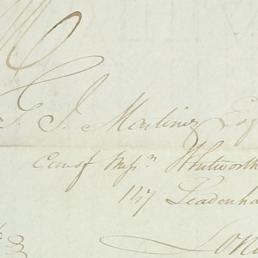 G. J. Martinez Esq
Care of Messrs Whitworth
147 Leadenha
Lon